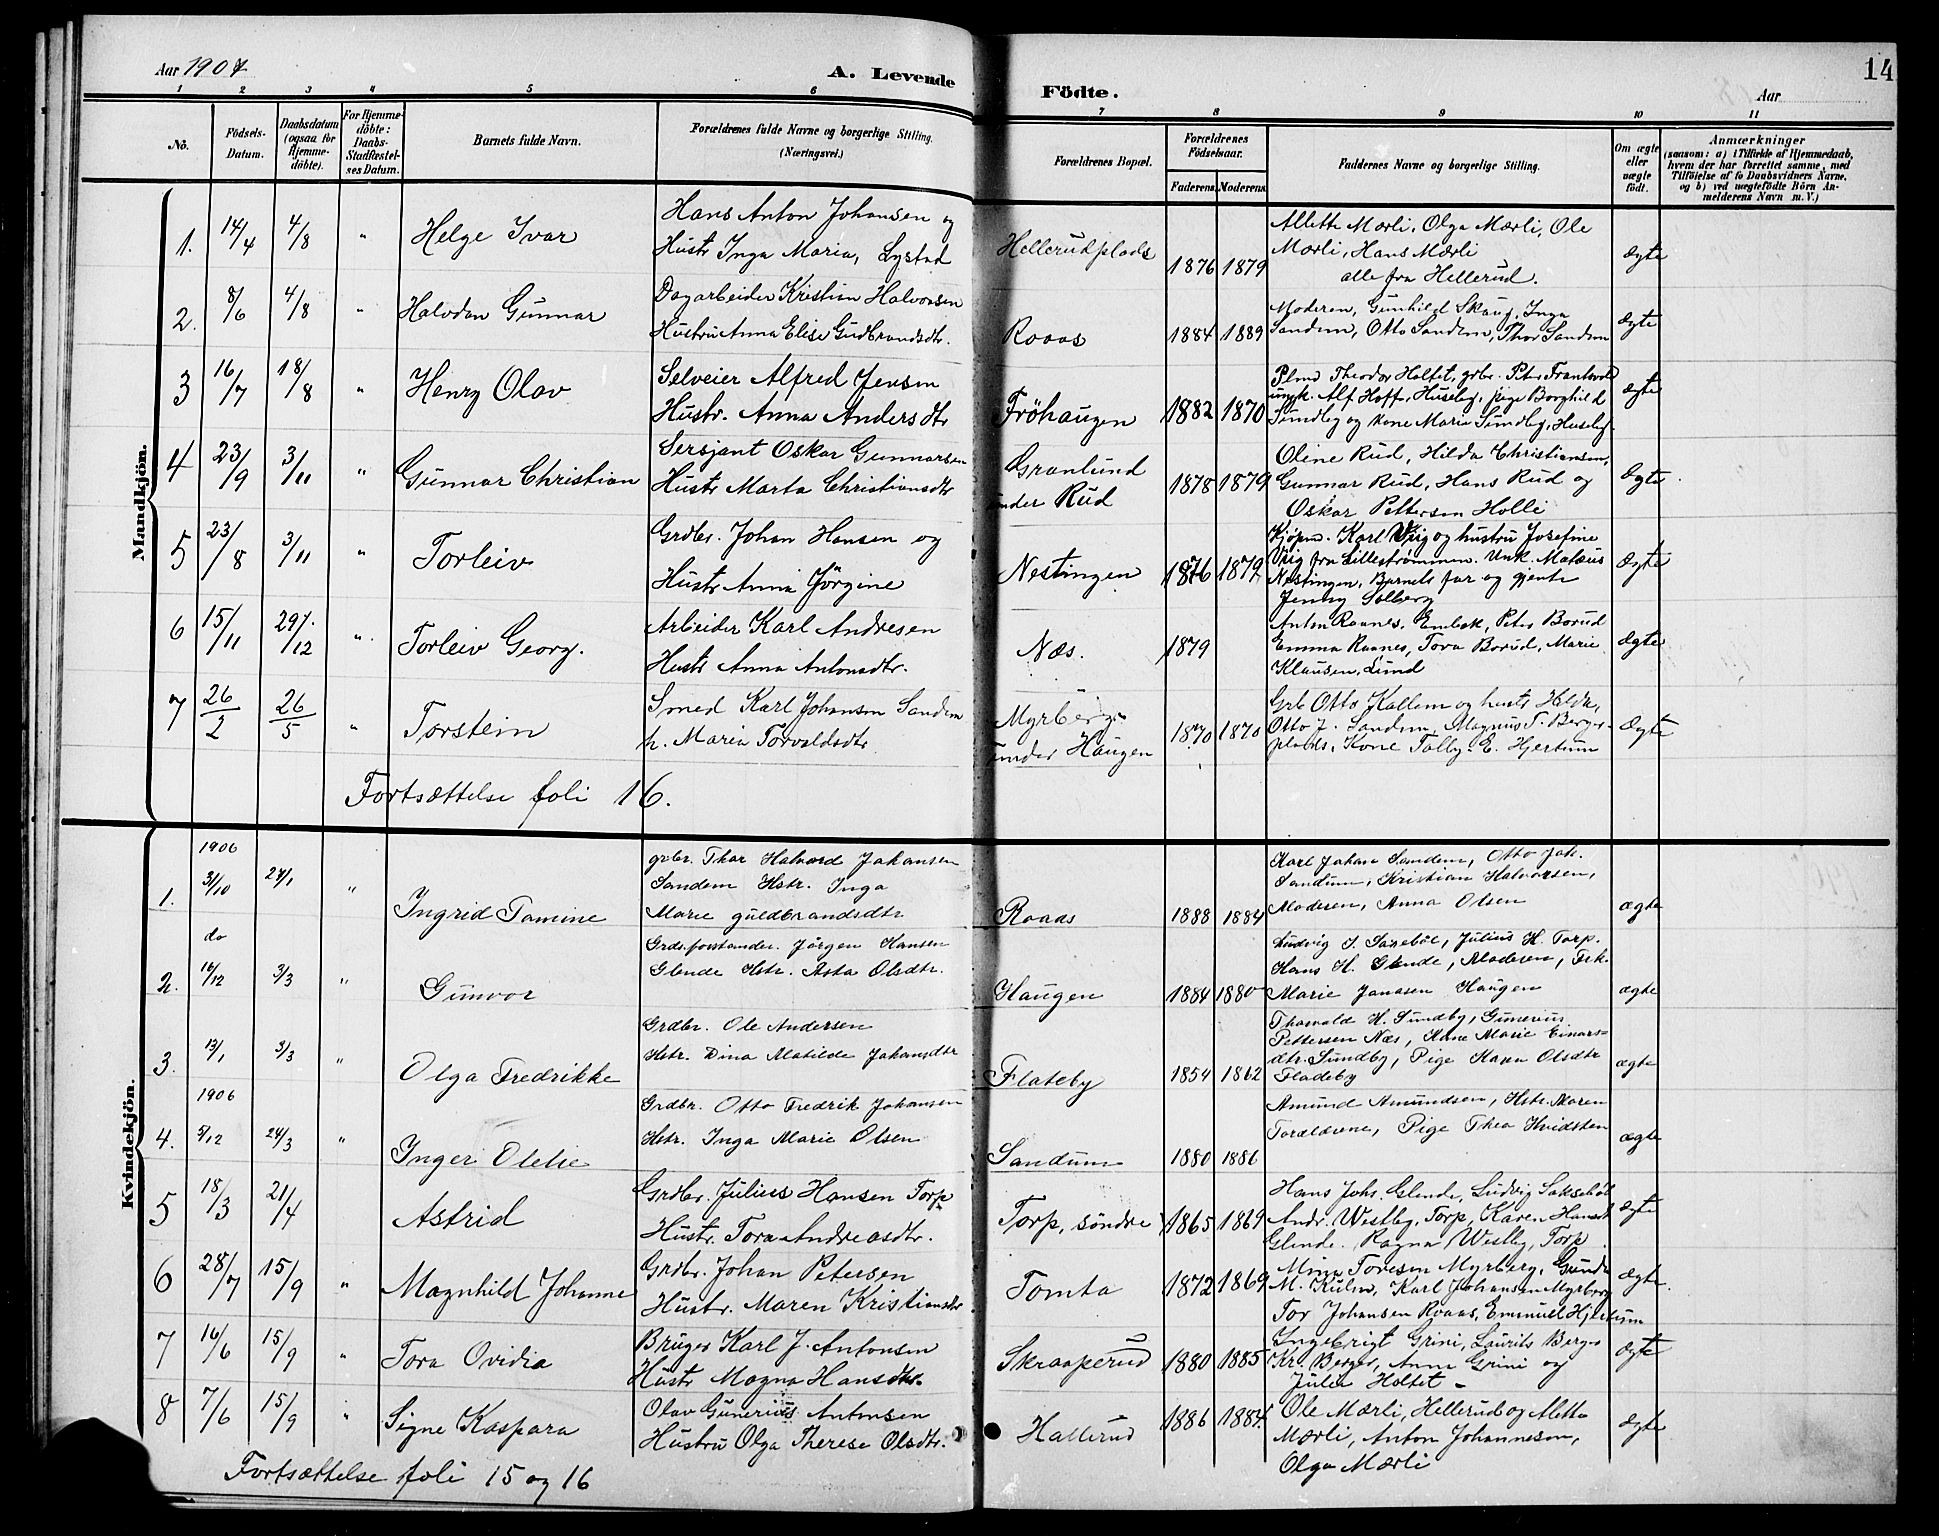 Aar 1907
A. Levende
Födte.
Aar
14
1 2 3 4 5 6 7 8 9 10 11
No.
Födsels-Datum.
Daabsdatum (ogsaa for Hjemmedöbte).
For Hjemmedöbte: Daabs-Stadfæstelses Datum.
Barnets fulde Navn.
Forældrenes fulde Navne og borgerlige Stilling. (Næringsvei.)
Forældrenes Bopæl.
Forældrenes Födselsaar.
Faderens. Moderens.
Faddernes Navne og borgerlige Stilling.
Om ægte eller uægte födt.
Anmærkninger
(saasom: a) i Tilfælde af Hjemmedaab,
hvem der har forrettet samme, med
Tilföielse af to Daabsvidners Navne,
og b) ved uægtefödte Börn An-
melderens Navn m. V.)
Mandkjön.
1. 14/4 4/8 " Helge Ivar
Hans Anton Johansen og
Hustr Inga Maria, Lystad
Hellerudplads 1876 1879
Allette Mærli, Olga Mærli, Ole
Mærli, Hans Mærli
alle fra Hellerud.
Ægte
2. 8/6 4/8 " Halvdan Gunnar
Dagarbeider Kristian Halvorsen
Hustru Anna Elise Gudbrandsdtr.
Roaas 1884 1889
Moderen, Gunhild Skaug, Inga
Sandem, Otto Sandem, Thor Sandem
Ægte
3 16/7 18/8 " Henry Olav
Selveier Alfred Jensen
Hustr. Anna Andersdtr
Fröhaugen 1882 1870
Theodor Holtet, grbr. Peter
ungk. Alf Hoff, Huseby, pige Borghild
Sundby og kone Marie Sundby, Huseby
Ægte
4 23/9 3/11 " Gunnar Christian
Sersjant Oskar Gunnarsen
Hustr Marta Christiansdtr
Granlund
under Rud 1878 1879
Oline Rud, Hilda Christiansen,
Gunnar Rud, Hans Rud og
Oskar Pettersen Holli
Ægte
5 23/8 3/11 " Torleiv
Grdbr. Johan Hansen og
Hustr Anna Jörgine
Nestingen 1876 1879
Kjøpm. Karl Vrig og hustru Josefine
Vrig fra Lillestrømmen. Unk. Matæus
Nestingen, Barnets far og gjente
Jenny Solberg
Ægte
6 15/11 29/12 " Torleiv Georg.
Arbeider Karl Andresen
Hustr Anna Antonsdtr.
Næs. 1879
Anton Raanes, Enebak, Peter Borud
Emma Raanes, Tora Borud, Marie
Klausen, Lund
Ægte
7 26/2 26/5 " Torstein
Smed Karl Johansen Sandem
h. Maria Torvaldsdtr
Myrberg
under Haugen 1870 1870
Grb Otto Kallem og hustr Hilda,
Otto J. Sandem, Magnus T. Berger-
plads, Kone Tolby. E. Hjertum
Ægte
Fortsættelse foli 16.
Kvindekjön.
1906
1. 31/10 27/1 " Ingrid Tomine
grbr. Thor Halvord Johansen
Sandem Hstr. Inga
Marie guldbrandsdtr
Roaas 1888 1884
Karl Johan Sandem, Otto Joh.
Sandum, Kristian Halvorsen,
Moderen, Anna Olsen
ægte
do
2. 16/12 3/3 " Gunvor
Grds.forstander. Jörgen Hansen
Glende Hstr. Asta Olsdtr.
Haugen 1884 1880
Ludvig S. Saxebøl, Julius H. Torp.
Hans H. Glende, Moderen, Frk.
Marie Jonasen Haugen
ægte
3. 13/1 3/3 " Olga Fredrikke
Grdbr. Ole Andersen
Hstr. Dina Matilde Johansdtr
Flateby 1854 1862
Thorvald H. Sundby, Gunerius
Pettersen Næs, Kone Marie Einars-
dtr. Sundby, Pige Maria Olsdtr
Fladeby
ægte
1906
4. 5/12 24/3 " Inger Olelie
Grdbr. Otto Fredrik Johansen
Hstr. Inga Marie Olsen
Sandum 1880 1886
Amund Amundsen, Hstr. Maren
Forældrene, Pige Thea Kvidsten
ægte
5 18/3 21/4 Astrid
Grdbr. Julius Hansen Torp
Hustr. Tora Andreasdtr.
Torp, söndre 1865 1869
Hans Johs. Glende, Ludvig Saksebøl
Andr. Westby, Torp, Karen Hansdt
Glende. Ragna Westby, Torp.
Ægte
6 28/7 15/9 " Magnhild Johanne
Grdbr. Johan Petersen
Hustr. Maren Kristiansdtr
Tomta 1872 1869
Mina Toresen Myrberg, Gunda
M. Kulm, Karl Johansen Myrberg
Tor Johansen Roaas, Emmuel Hjertum
Ægte.
7 16/6 15/9 " Tora Ovidia
Bruger Karl J. Antonsen
Hustr Magna Hansdtr.
Skraaperud 1880 1885
Ingebrigt Grini, Laurits Berger
Kr. Berger, Anne Grini og
Julia Holtet -
Ægte
8 7/6 15/9 " Signe Kaspara
Olav Gunerius Antonsen
Hustru Olga Therese Olsdtr.
Hallerud 1886 1884
Ole Mærli, Hellerud og Aletta
Mærli, Anton Johannesen,
Olga Mærli
Ægte
Fortsættelse foli 15 og 16